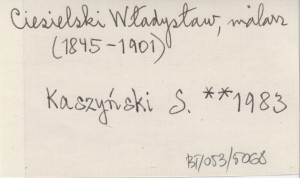 Ciesielski Władysław, malarz
(1845-1901)
Kaszyński S. **1983
BT/053/5068